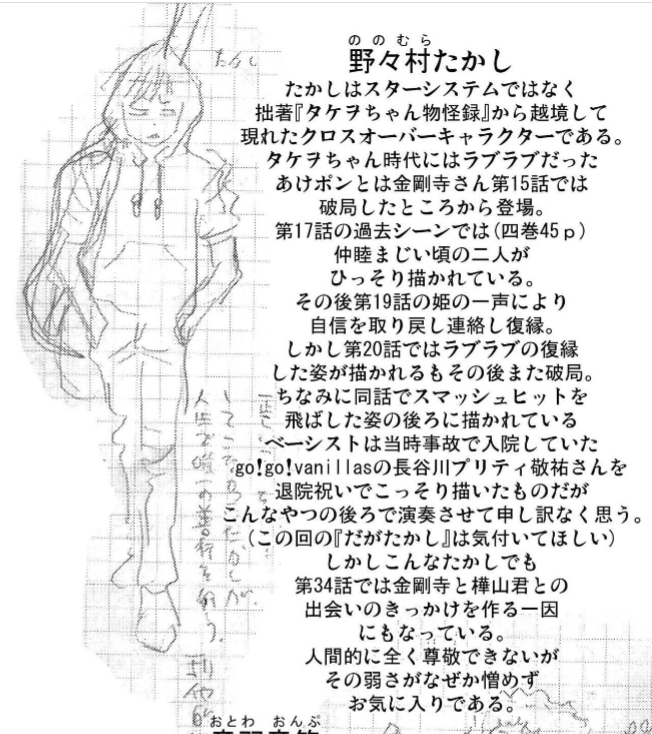 ののむら
野々村たかし
たかしはスターシステムではなく
拙著『タケヲちゃん物怪録』から越境して
現れたクロスオーバーキャラクターである。
タケヲちゃん時代にはラブラブだった
あけポンとは金剛寺さん第15話では
破局したところから登場。
第17話の過去シーンでは(四巻45p)
仲睦まじい頃の二人が
ひっそり描かれている。
その後第19話の姫の一声により
自信を取り戻し連絡し復縁。
しかし第20話ではラブラブの復縁
した姿が描かれるもその後また破局。
ちなみに同話でスマッシュヒットを
飛ばした姿の後ろに描かれている
ベーシストは当時事故で入院していた
go!go!vanillasの長谷川プリティ敬祐さんを
退院祝いでこっそり描いたものだが
こんなやつの後ろで演奏させて申し訳なく思う。
(この回の『だがたかし』は気付いてほしい)
しかしこんなたかしでも
第34話では金剛寺と樺山君との
出会いのきっかけを作る一因
にもなっている。
人間的に全く尊敬できないが
その弱さがなぜか憎めず
お気に入りである。
たかし
おとわ おんぷ